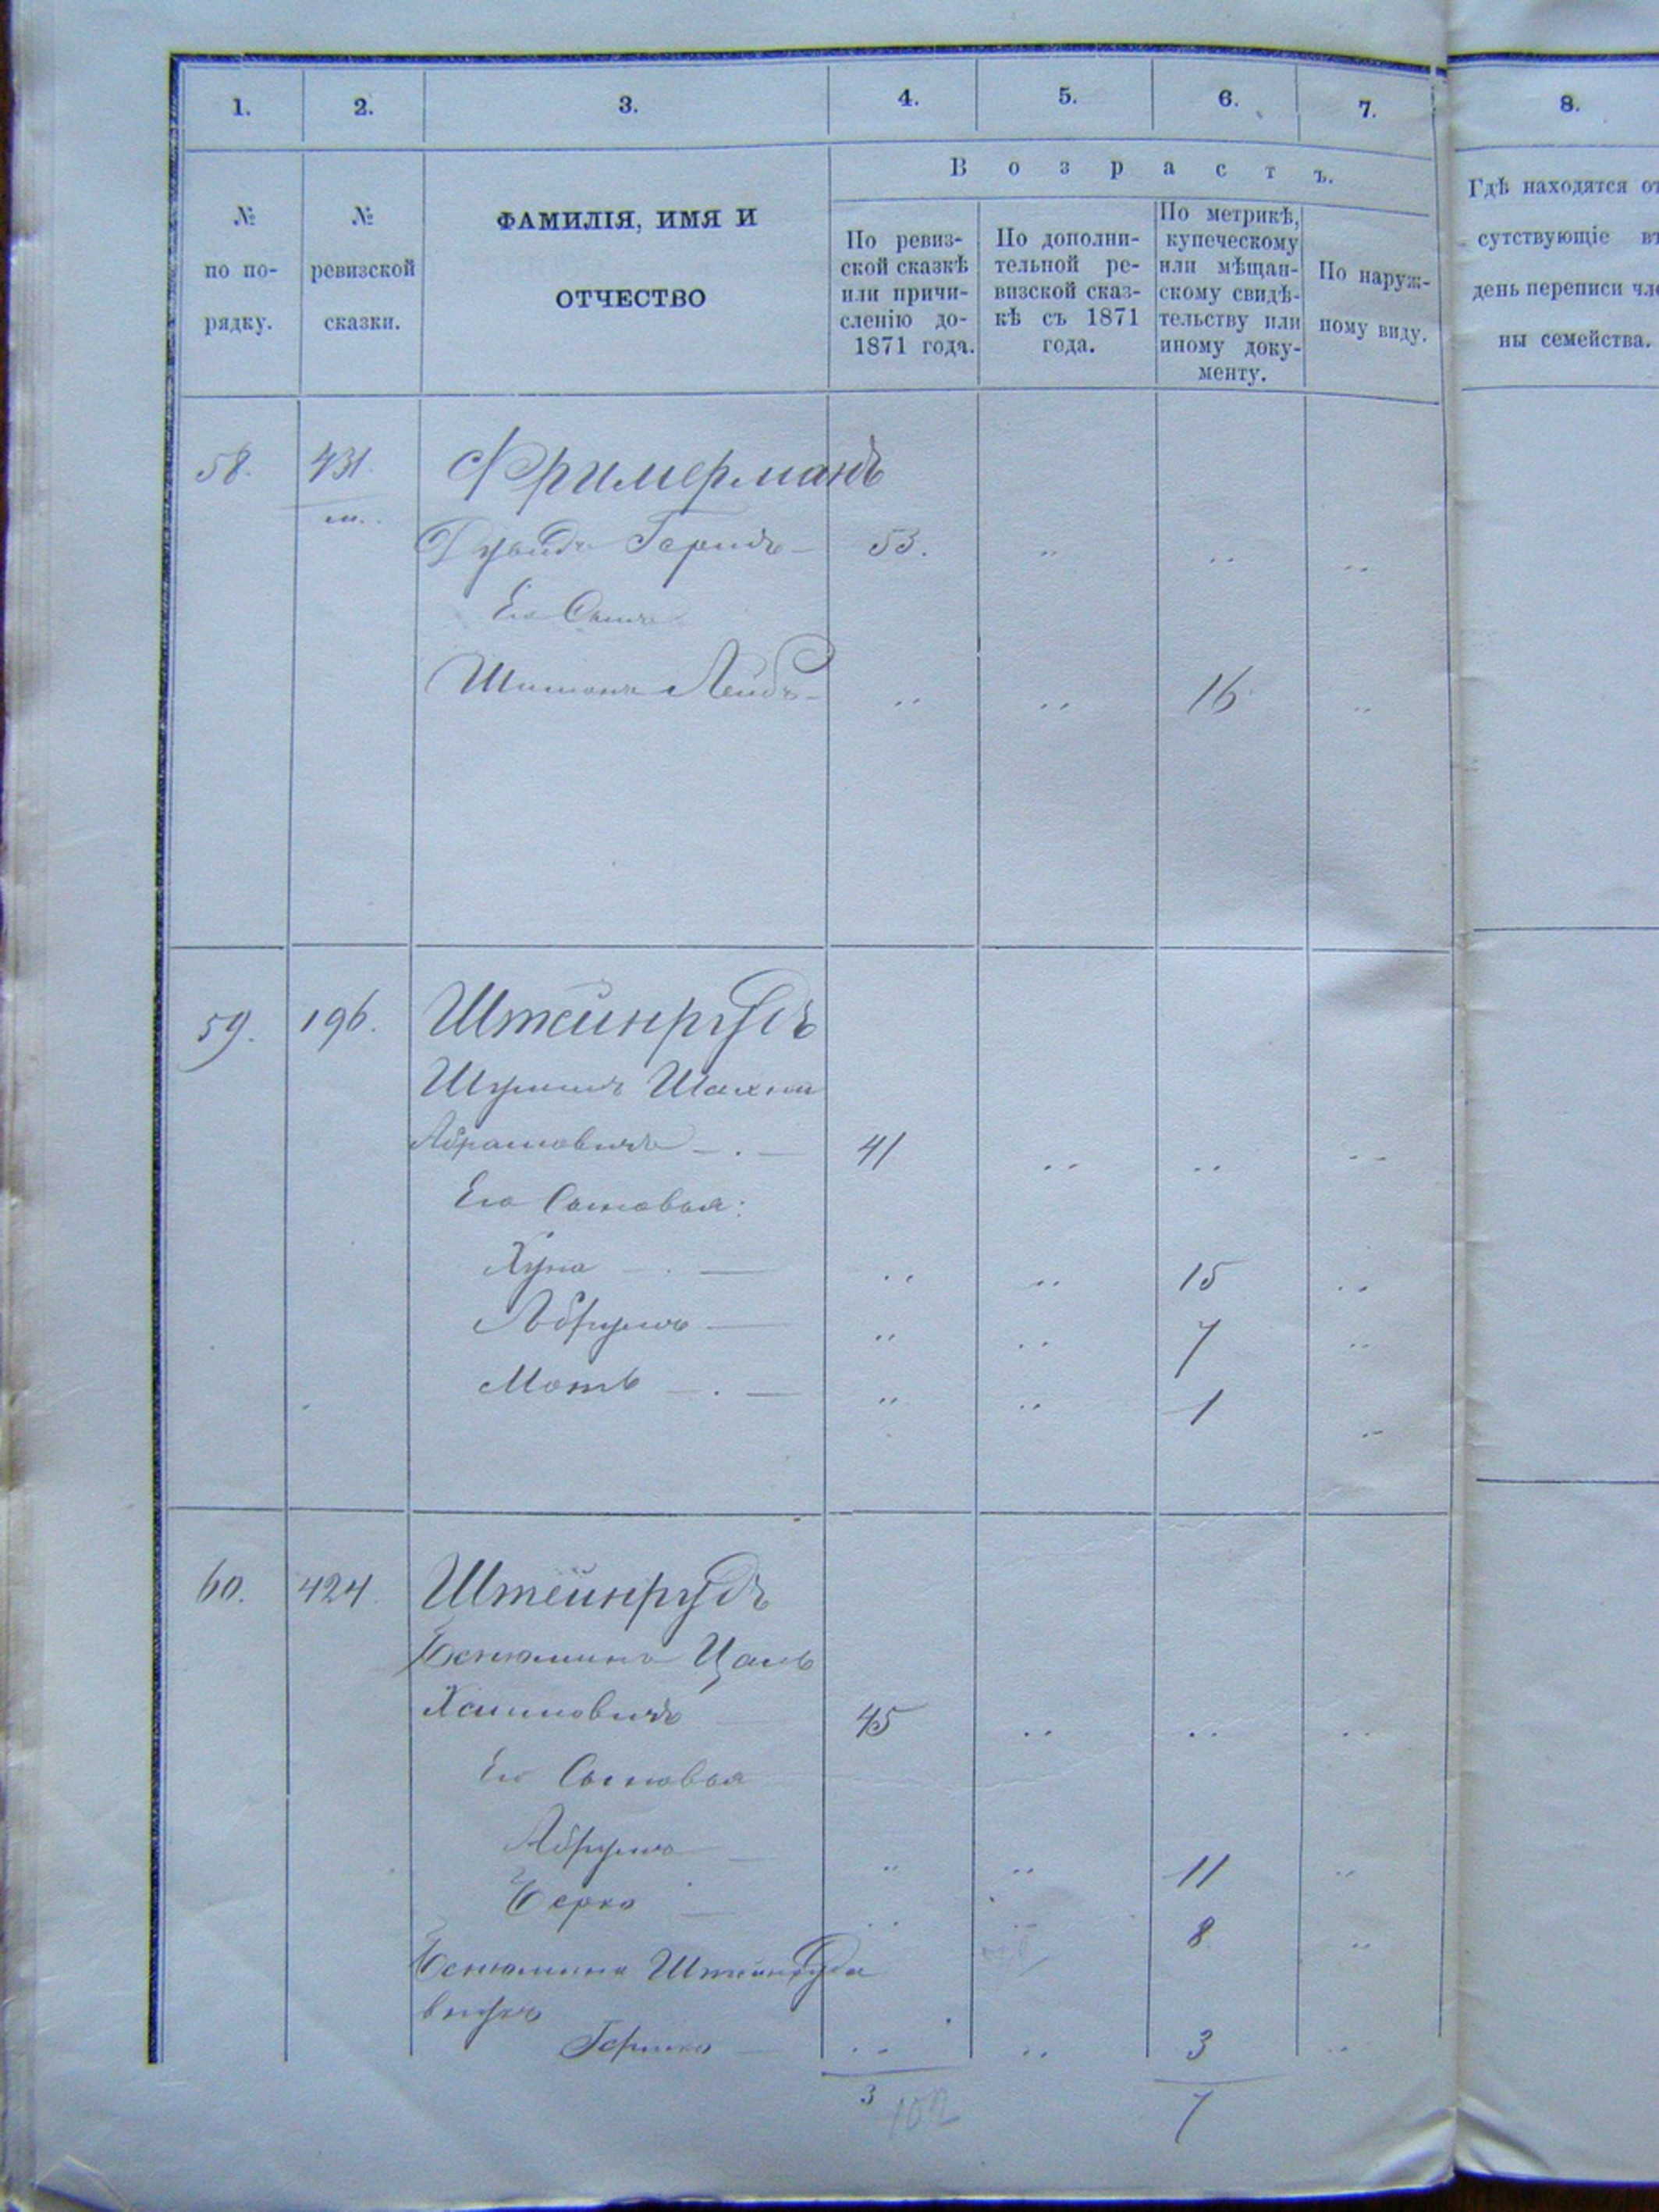 1. 2. 3. 4. 5. 6. 7. 8.
В о з р а с т ъ.
№ по по- рядку.
№ ревизской сказки.
ФАМИЛІЯ, ИМЯ И
ОТЧЕСТВО
По ревиз-
ской сказкѣ
или причи-
сленію до-
1871 года.
По дополни-
тельной ре-
визской сказ-
кѣ съ 1871
года.
По метрикѣ,
купеческому
или мѣщан-
скому свидѣ-
тельству или
иному доку-
менту.
По наруж-
ному виду.
Гдѣ находятся от
сутствующіе въ
день переписи чле
ны семейства.
58. 431. Фримерманъ
Герш 53.
Его Сынъ
Шимонъ Лейбъ 16
59. 196. Штейнрудъ
Шулимъ Шахна
Абрамовичъ 41
Его Сыновья:
Хуна 15
Абрумъ 7
Моть 1
60. 424. Штейнрудъ
Бенюминъ Цаль
Хаимовичъ 45
Его Сыновья
Абрумъ 11
Берко 8
Бенюмина Штейнруда
внукъ
Гершко 3
3 102 7